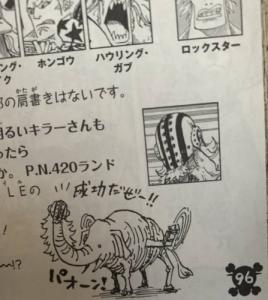 リング・
イク
ホンゴウ
ハウリング・
ガブ
ロックスター
の肩書きはないです。
かたが
明るいキラーさんも
ったら
か。P.N.420ランド
LEの
成功だぜ〜!!
!
〜!?
パオーン!
96